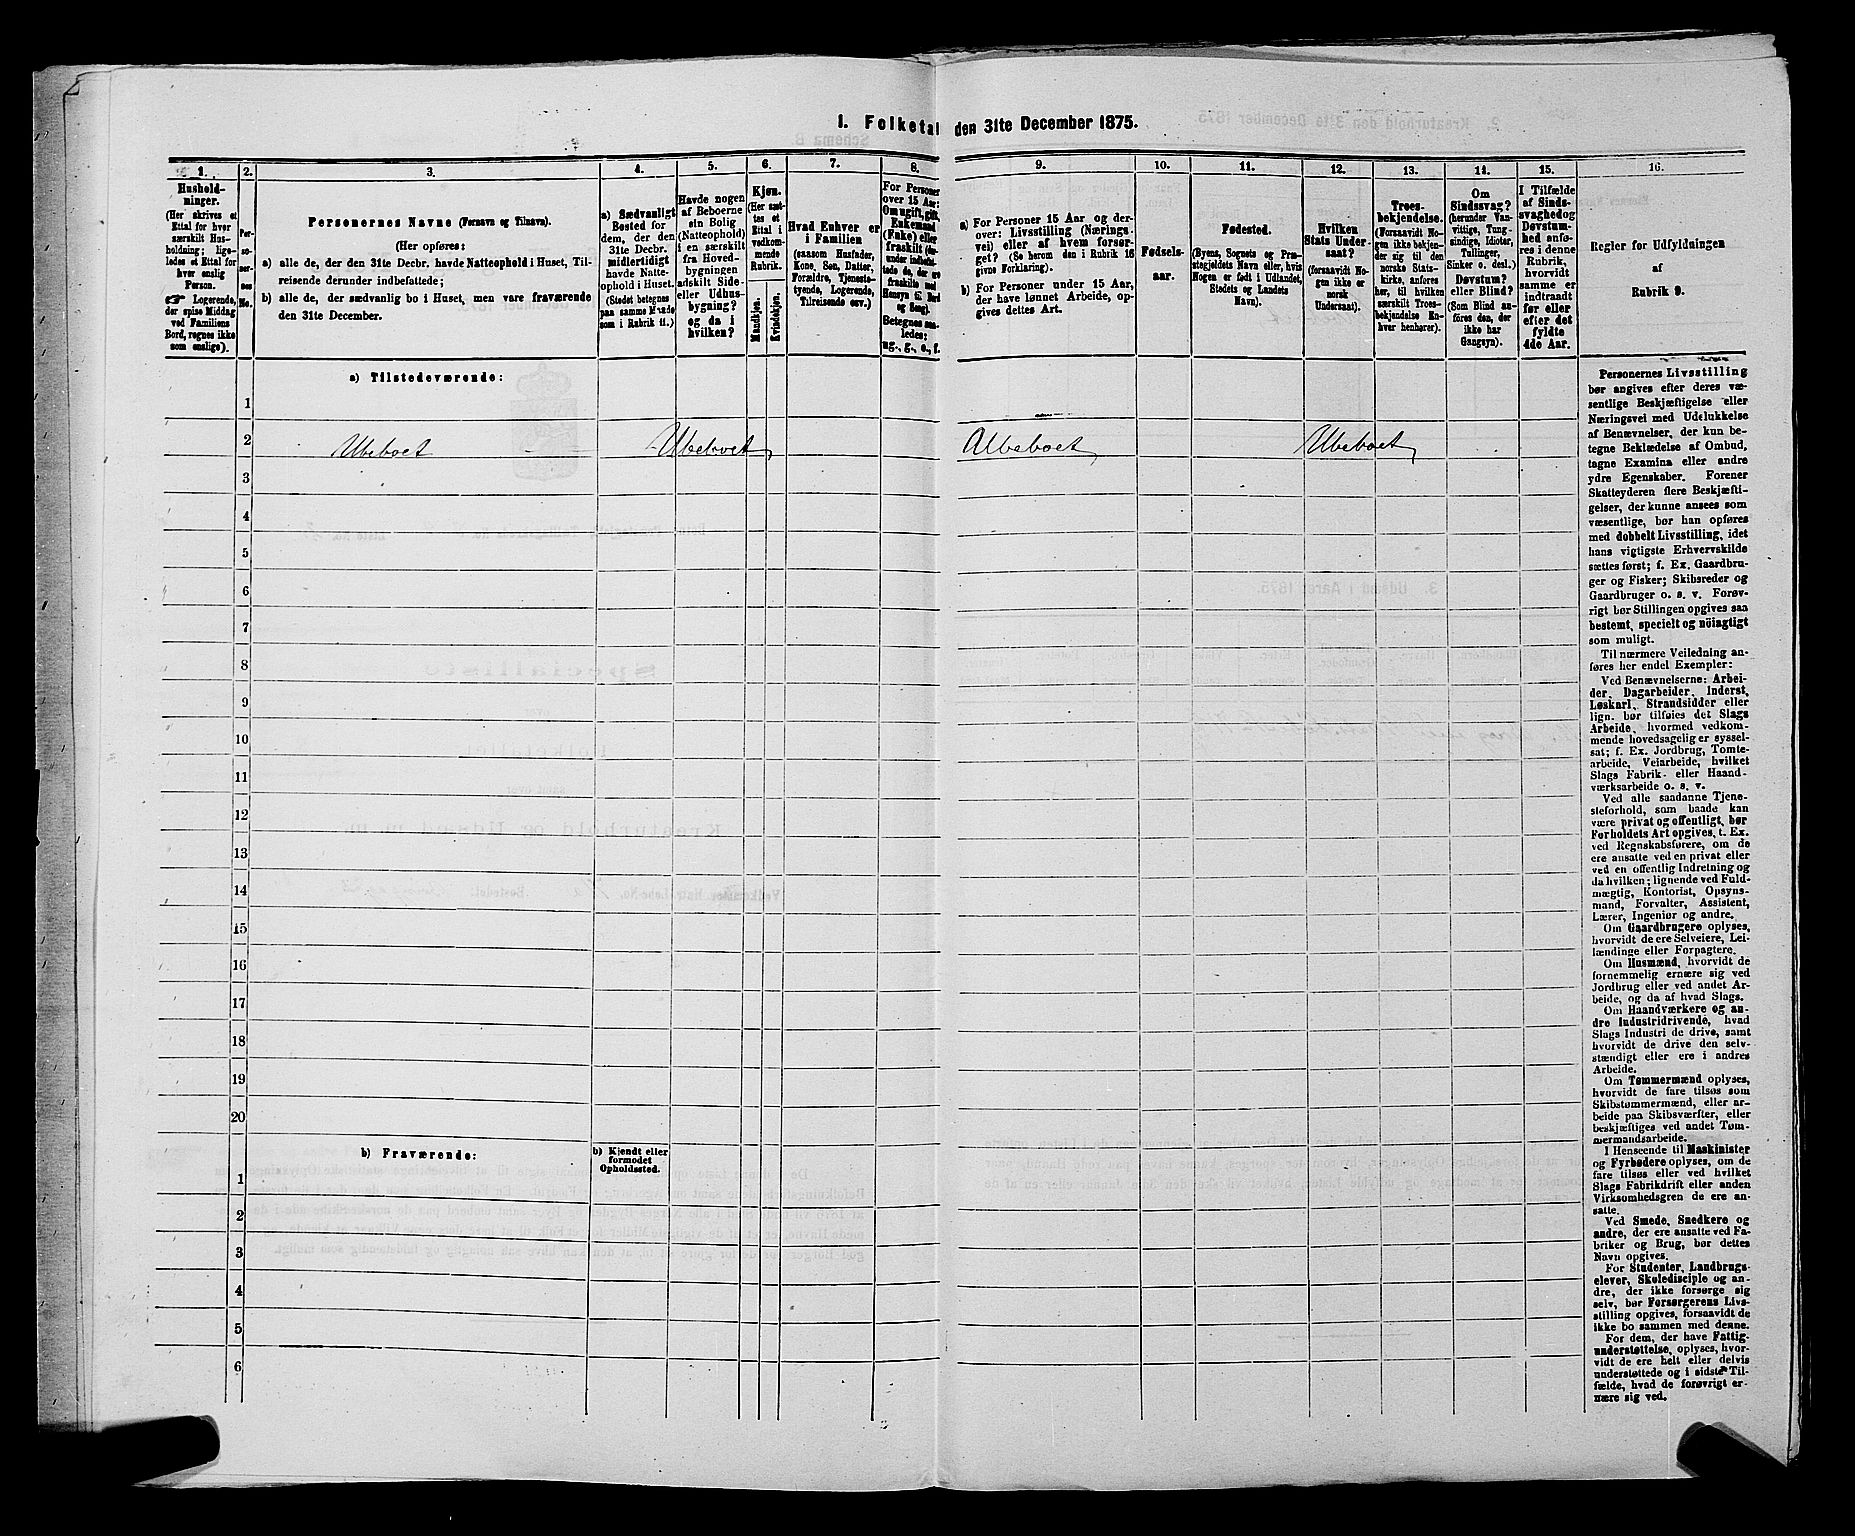 1. Folketal den 31te December 1875.
1.
Hushold-
ninger.
(Her skrives et
Ettal for hver
særskilt Hus-
holdning; lige-
ledes et Ettal for
hver enslig
Person.
☞ Logerende,
der spise Middag
ved Familiens
Bord, regnes ikke
som enslige).
2.
Per-
so-
ner-
nes
No.
3.
Personernes Navne (Fornavn og Tilnavn).
(Her opføres:
a) alle de, der den 31te Decbr. havde Natteophold i Huset, Til-
reisende derunder indbefattede;
b) alle de, der sædvanlig bo i Huset, men vare fraværende
den 31te December.
4.
a) Sædvanligt
Bosted for
dem, der den
31te Decbr.
midlertidigt
havde Natte-
ophold i Huset.
(Stedet betegnes
paa samme Maade
som i Rubrik 11.)
5.
Havde nogen
af Beboerne
sin Bolig
(Natteophold)
i en særskilt
fra Hoved-
bygningen
adskilt Side-
eller Udhus-
bygning?
og da i
hvilken?
6.
Kjøn.
(Her sæt-
tes et
Ettal i
vedkom-
mende
Rubrik.
Mandkjøn.
Kvindekjøn.
7.
Hvad Enhver er
i Familien
(saasom Husfader,
Kone, Søn, Datter,
Forældre, Tjeneste-
tyende, Logerende,
Tilreisende osv.)
8.
For Personer
over 15 Aar:
Om ugift, gift,
Enkemand
(Enke) eller
fraskilt (der-
under indbefat-
tede de, der ere
fraskilte med
Hensyn til Bord
og Seng).
Betegnes saa-
ledes:
ug., g., e., f.
9.
a) For Personer 15 Aar og der-
over: Livsstilling (Nærings-
vei) eller af hvem forsør-
get? (Se herom den i Rubrik 16
givne Forklaring).
b) For Personer under 15 Aar,
der have lønnet Arbeide, op-
gives dettes Art.
10.
Fødsels-
aar.
11.
Fødested.
(Byens, Sognets og Præ-
stegjeldets Navn eller, hvis
Nogen er født i Udlandet,
Stedets og Landets
Navn).
12.
Hvilken
Stats Under-
saat?
(forsaavidt No-
gen ikke er
norsk
Undersaat).
13.
Troes-
bekjendelse.
(Forsaavidt No-
gen ikke bekjen-
der sig til den
norske Stats-
kirke, anføres
her, til hvilken
særskilt Troes-
bekjendelse En-
hver henhører).
14.
Om
Sindssvag?
(herunder Van-
vittige, Tung-
sindige, Idioter,
Tullinger,
Sinker o. desl.)
Døvstum?
eller Blind?
(Som Blind an-
føres den, der
ikke har
Gangsyn).
15.
I Tilfælde
af Sinds-
svaghed og
Døvstum-
hed anfø-
res i denne
Rubrik,
hvorvidt
samme er
indtraadt
før eller
efter det
fyldte
4de Aar.
16.
Regler for Udfyldningen
af
Rubrik 9.
a) Tilstedeværende:
1
2 Ubeboet Ubeboet Ubeboet Ubeboet
3
4
5
6
7
8
9
10
11
12
13
14
15
16
17
18
19
20
b) Fraværende:
b) Kjendt eller
formodet
Opholdssted.
1
2
3
4
5
6
Personernes Livsstilling
bør angives efter deres væ-
sentlige Beskjæftigelse eller
Næringsvei med Udelukkelse
af Benævnelser, der kun be-
tegne Beklædelse af Ombud,
tagne Examina eller andre
ydre Egenskaber. Forener
Skatteyderen flere Beskjæfti-
gelser, der kunne ansees som
væsentlige, bør han opføres
med dobbelt Livsstilling, idet
hans vigtigste Erhvervskilde
sættes først; f. Ex. Gaardbru-
ger og Fisker; Skibsreder og
Gaardbruger o. s. v. Forøv-
rigt bør Stillingen opgives saa
bestemt, specielt og nöiagtigt
som muligt.
Til nærmere Veiledning an-
føres her endel Exempler:
Ved Benævnelserne: Arbei-
der, Dagarbeider, Inderst,
Løskarl, Strandsidder eller
lign. bør tilføies det Slags
Arbeide, hvormed vedkom-
mende hovedsagelig er syssel-
sat; f. Ex. Jordbrug, Tomte-
arbeide, Veiarbeide, hvilket
Slags Fabrik- eller Haand-
værksarbeide o. s. v.
Ved alle saadanne Tjene-
steforhold, som baade kan
være privat og offentligt, bør
Forholdets Art opgives, t. Ex.
ved Regnskabsførere, om de
ere ansatte ved en privat eller
ved en offentlig Indretning og
da hvilken; lignende ved Fuld-
mægtig, Kontorist, Opsyns-
mand, Forvalter, Assistent,
Lærer, Ingeniør og andre.
Om Gaardbrugere oplyses,
hvorvidt de ere Selveiere, Lei-
lændinge eller Forpagtere.
Om Husmænd, hvorvidt de
fornemmelig ernære sig ved
Jordbrug eller ved andet Ar-
beide, og da af hvad Slags.
Om Haandværkere og an-
dre Industridrivende, hvad
Slags Industri de drive, samt
hvorvidt de drive den selv-
stændigt eller ere i andres
Arbeide.
Om Tømmermænd oplyses,
hvorvidt de fare tilsøs som
Skibstømmermænd, eller ar-
beide paa Skibsværfter, eller
beskjæftiges ved andet Tøm-
mermandsarbeide.
I Henseende til Maskinister
og Fyrbødere oplyses, om de
fare tilsøs eller ved hvilket
Slags Fabrikdrift eller anden
Virksomhedsgren de ere an-
satte.
Ved Smede, Snedkere og
andre, der ere ansatte ved Fa-
briker og Brug, bør dettes
Navn opgives.
For Studenter, Landbrugs-
elever, Skoledisciple og an-
dre, der ikke forsørge sig
selv, bør Forsørgerens Livs-
stilling opgives, forsaavidt de
ikke bo sammen med denne.
For dem, der have Fattig-
understøttelse, oplyses, hvor-
vidt de ere helt eller delvis
understøttede og i sidste Til-
fælde, hvad de forøvrigt er-
nære sig ved.